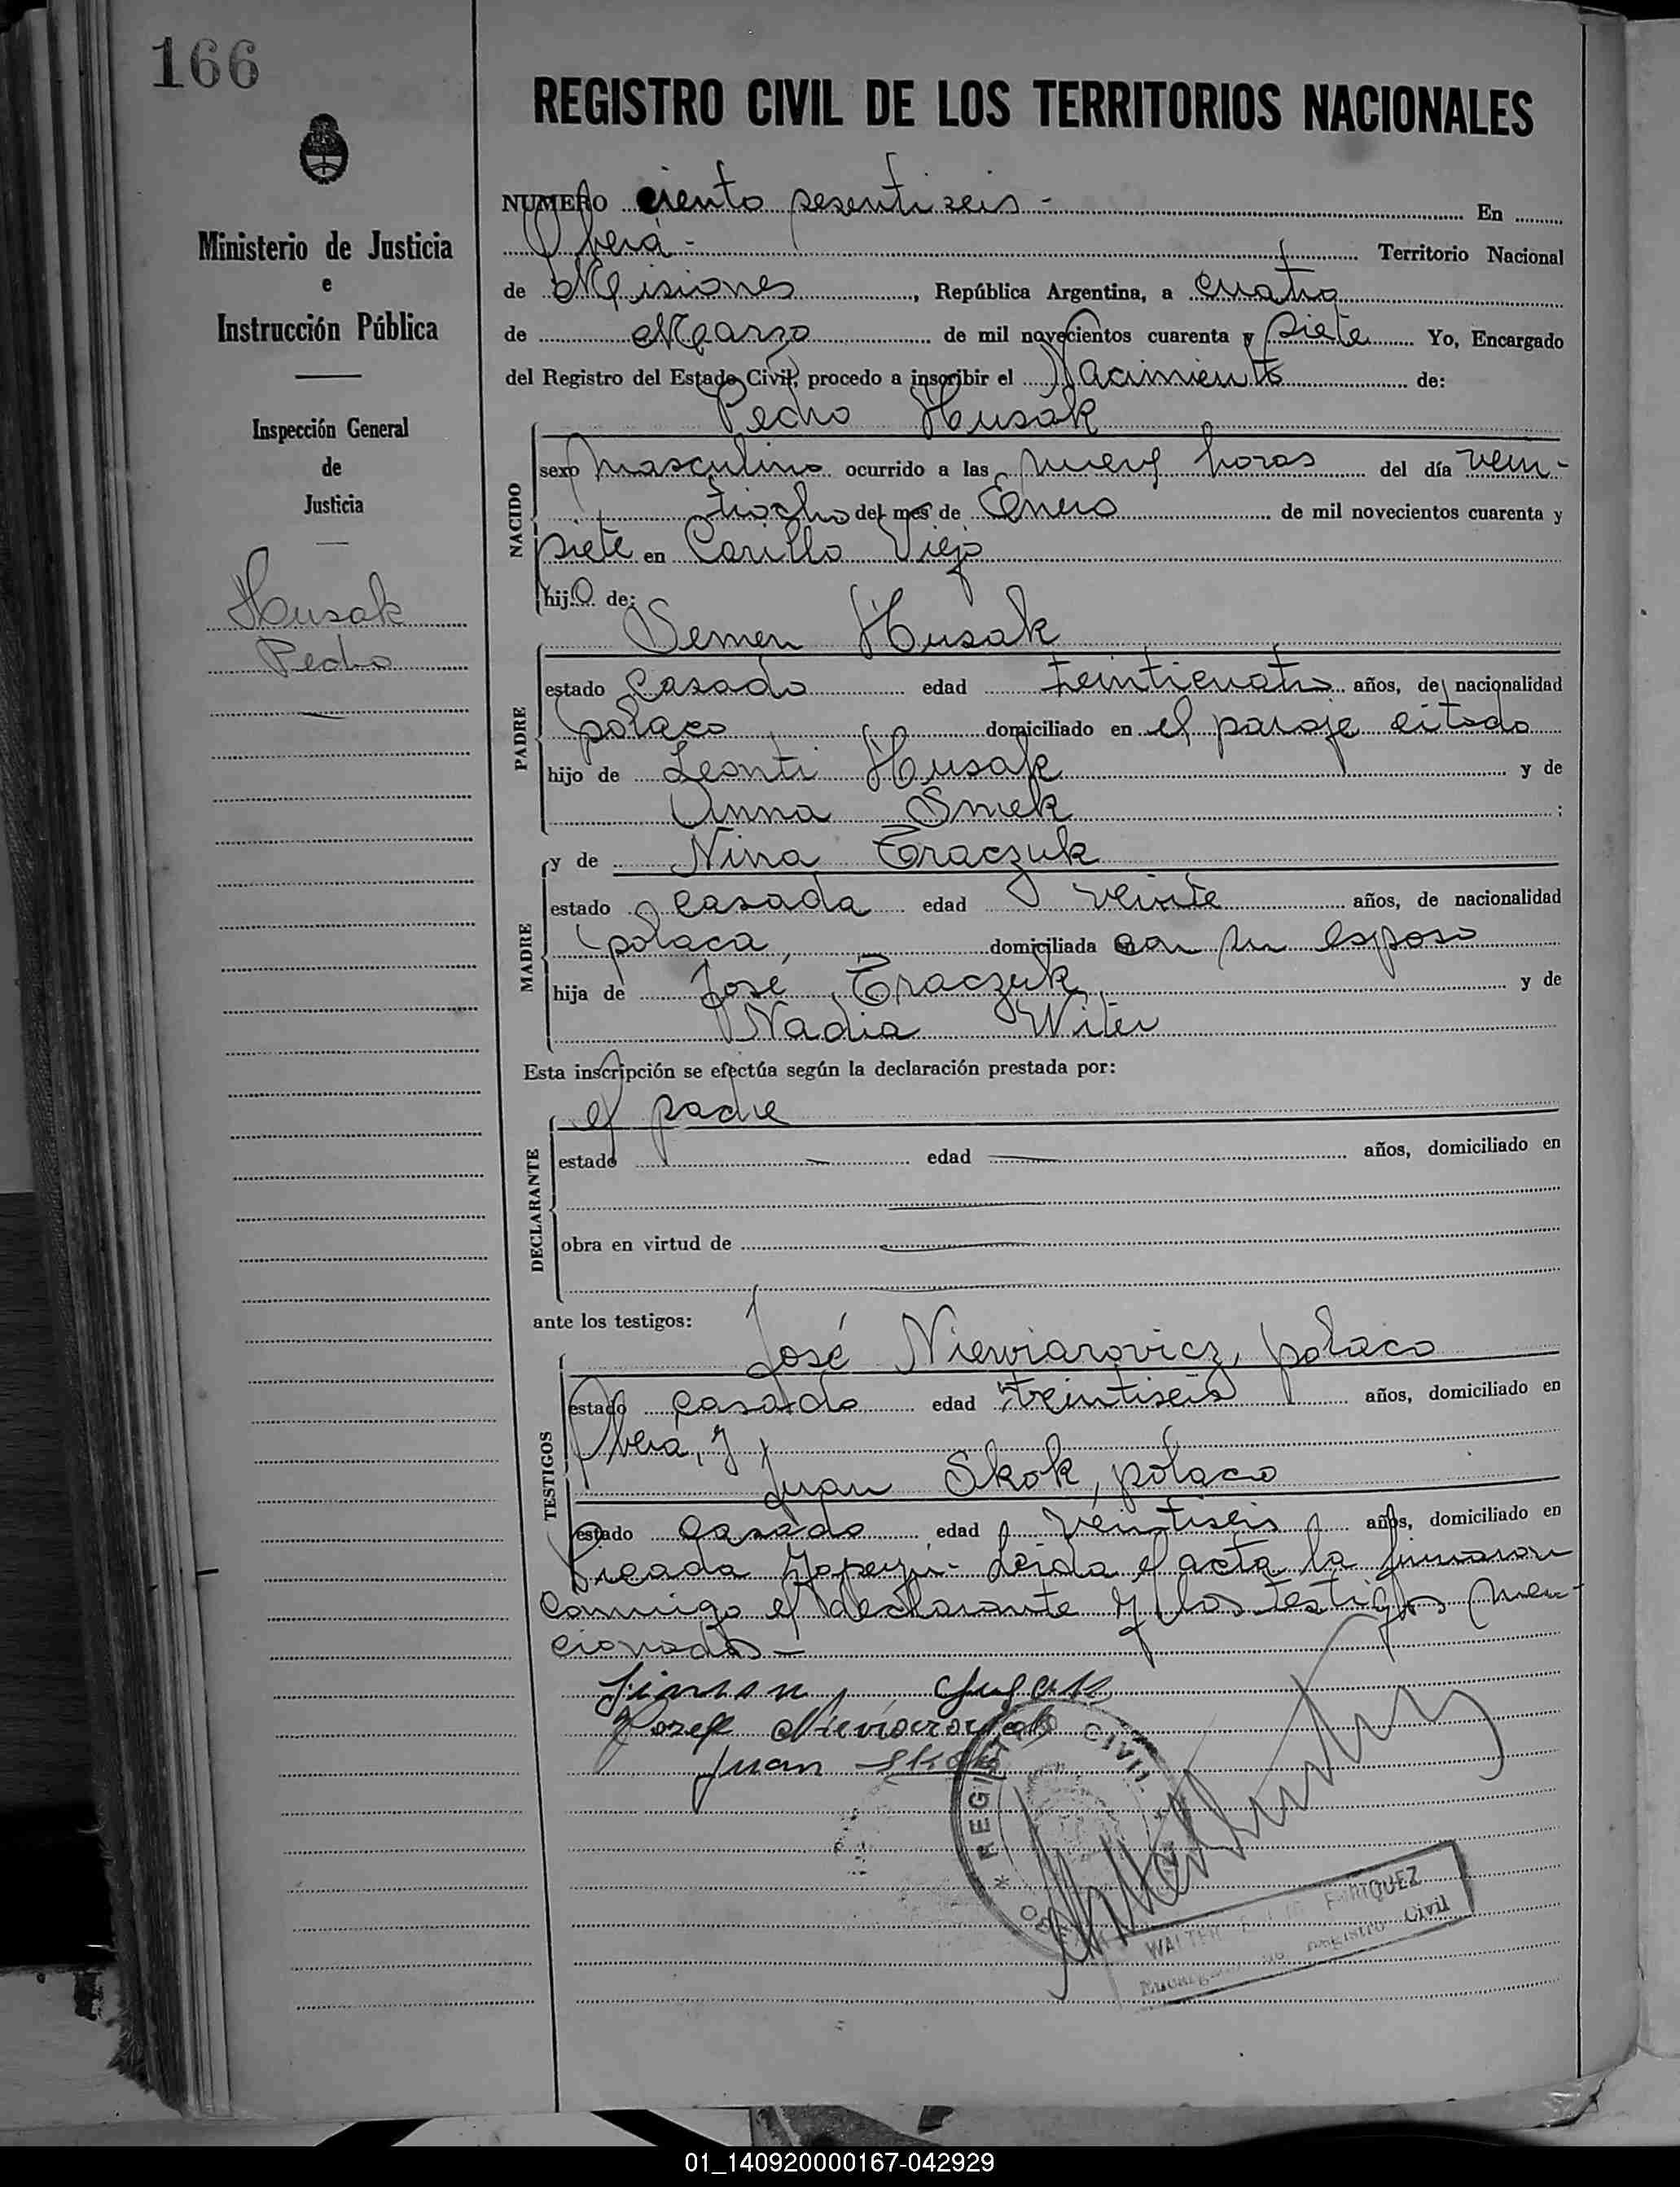 166
Ministerio de Justicia
e
Instrucción Pública
Inspección General
de
Justicia
Husak
Pedro
REGISTRO CIVIL DE LOS TERRITORIOS NACIONALES
NUMERO ciento sesentiseis - En
Oberá - Territorio Nacional
de Misiones, República Argentina, a cuatro
de Marzo de mil novecientos cuarenta y siete Yo, Encargado
del Registro del Estado Civil, procedo a inscribir el Nacimiento de:
Pedro Husak
NACIDO
sexo masculino ocurrido a las nueve horas del día vein-
tiocho del mes de Enero de mil novecientos cuarenta y
siete en Cerillo Viejo
hijo de:
PADRE
Semen Husak
estado casado edad treinticuatro años, de nacionalidad
polaco domiciliado en el paraje citado
hijo de Leonti Husak y de
Anna Smek ;
MADRE
y de Nina Traczuk
estado casada edad veinte años, de nacionalidad
polaca, domiciliada con su esposo
hija de José Traczuk y de
Nadia Witer
Esta inscripción se efectúa según la declaración prestada por:
DECLARANTE
el padre
estado edad años, domiciliado en
obra en virtud de
ante los testigos:
TESTIGOS
José Niewiarovicz, polaco
estado casado edad treintiseis años, domiciliado en
Oberá, y
Juan Skok, polaco
estado casado edad veintiseis años, domiciliado en
Picada Yapeyú - Leida el acta la firmaron
conmigo el declarante y los testigos men-
cionados -
Juan Skok
REGISTRO CIVIL
WALTER ENRIQUEZ
Encargado Registro Civil
01_140920000167-042929